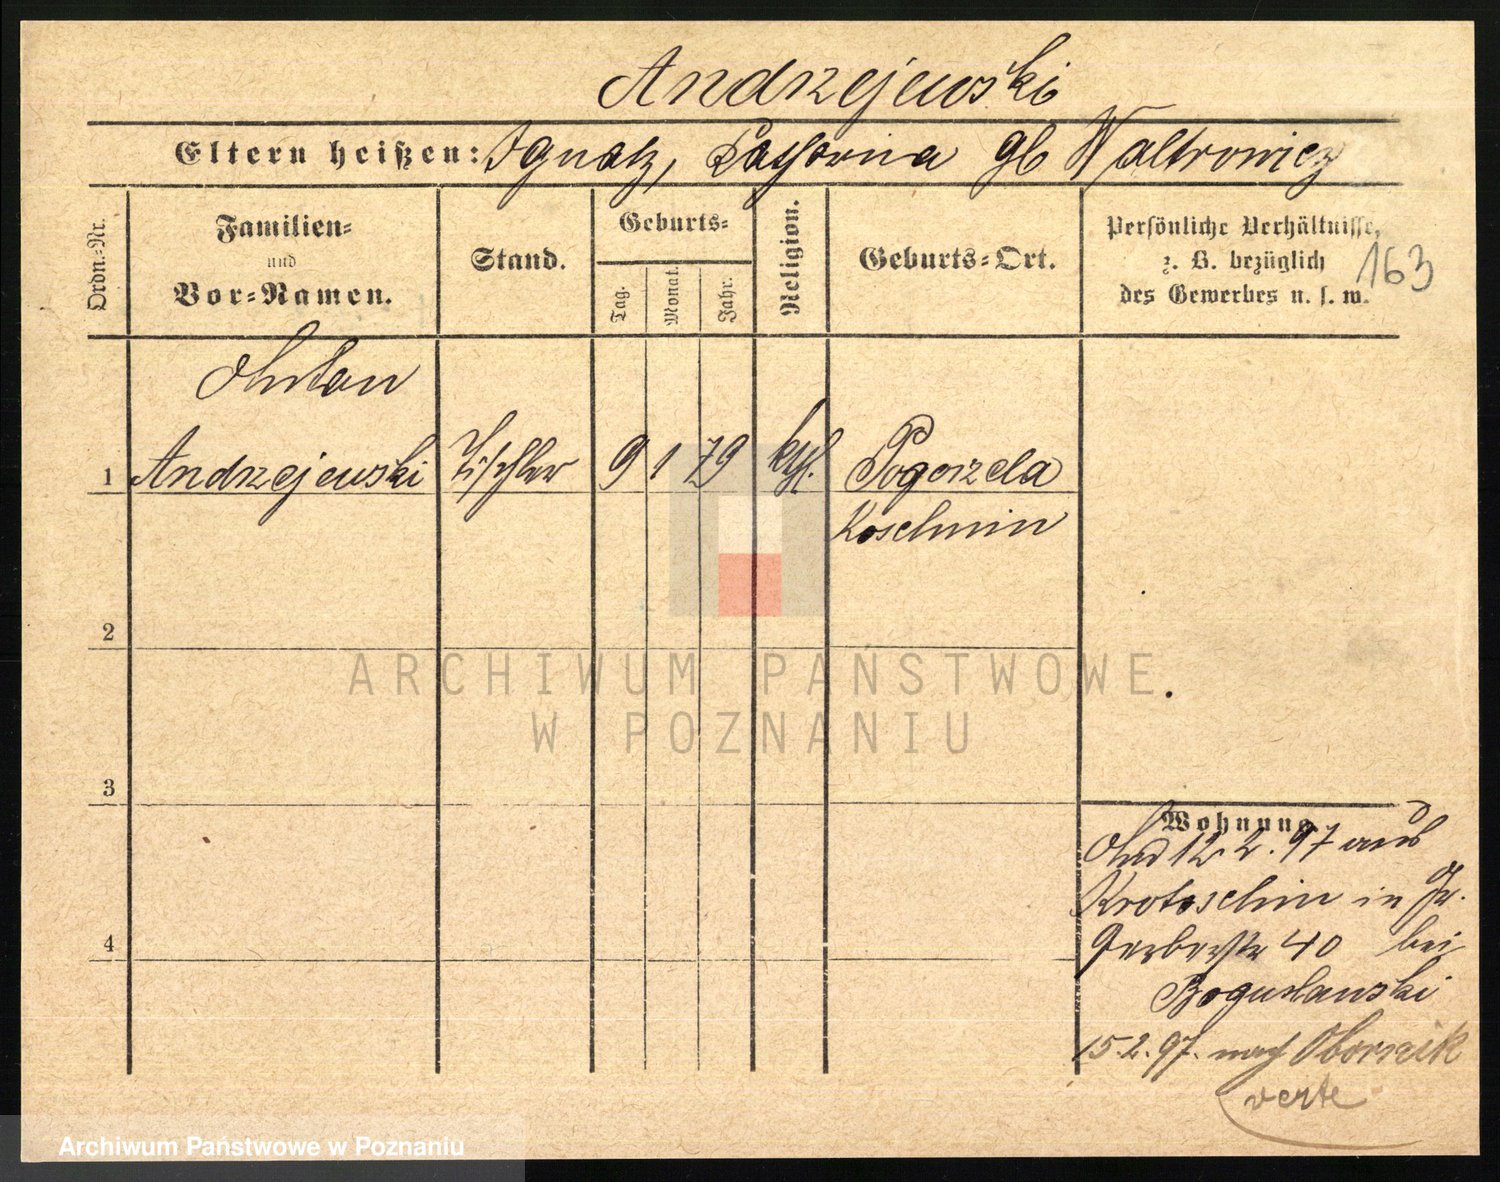 Andrzejewski
Eltern heißen: Ignatz, Katharina gb Waltrowicz
Ordn.-Nr.
Familien-
und
Vor-Namen.
Stand.
Geburts-
Tag.
Monat.
Jahr.
Religion.
Geburts-Ort.
Persönliche Verhältnisse,
z. B. bezüglich
des Gewerbes u. s. w.
163
Anton
1 Andrzejewski Tischler 9 1 79 kth. Pogorzela
Koschmin
2
3
4
Wohnung
12 2. 97 aus
Krotoschin in Gr.
Gerberstr 40 bei
Boguslawski
15.2.97. nach Obornik
verte
ARCHIWUM PAŃSTWOWE
W POZNANIU
Archiwum Państwowe w Poznaniu